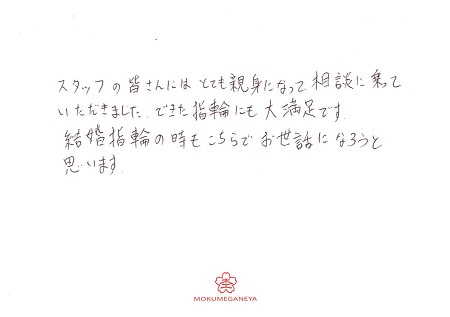 スタッフの皆さんには とても親身になって 相談に乗って
いただきました。できた指輪にも 大満足です。
結婚指輪の時も こちらで お世話に なろうと
思います。
MOKUMEGANEYA